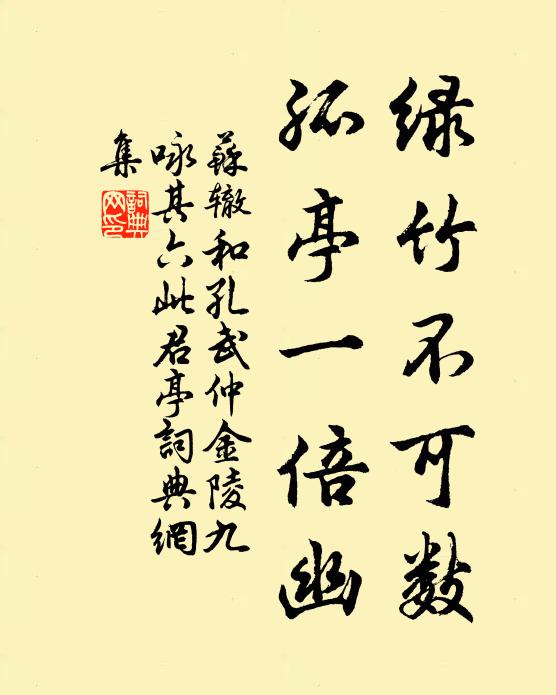 绿竹不可数
孤亭一倍幽
蘇辙和孔武仲金陵九
咏其六此君亭詞典網
集
詞典
网印